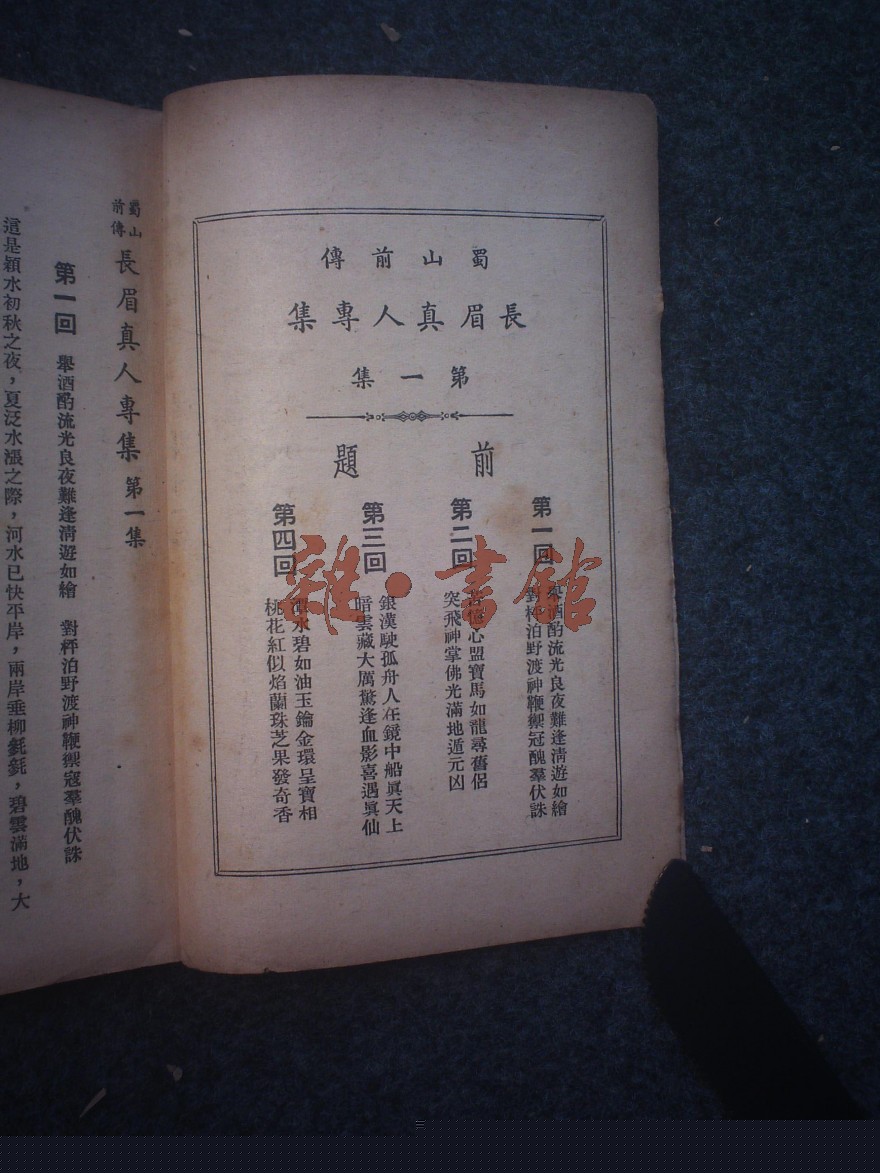 蜀山前傳
長眉真人專集
第一集
前題
第一回
舉酒酌流光良夜難逢清遊如繪
對枰泊野渡神鞭禦冠醜羣伏誅
第二回
心盟寶馬如龍尋舊侶
突飛神掌佛光滿地遁元凶
第三回
銀漢駛孤舟人在鏡中船眞天上
暗雲藏大厲驚逢血影喜遇眞仙
第四回
潭水碧如油玉鑰金環呈寶相
桃花紅似焰蘭珠芝果發奇香
雜·書館
蜀山前傳 長眉真人專集 第一集
第一回 舉酒酌流光良夜難逢清遊如繪 對枰泊野渡神鞭禦寇羣醜伏誅
這是穎水初秋之夜，夏泛水漲之際，河水已快平岸，兩岸垂柳毿毿，碧雲滿地，大